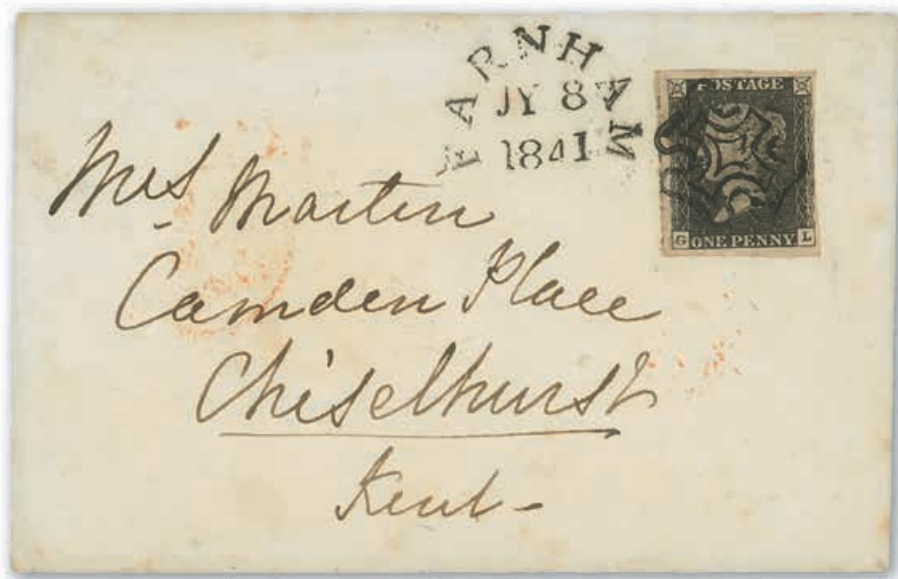 FARNHAM
JY 8
1841
POSTAGE
G ONE PENNY L
Mrs Martin
Camden Place
Chiselhurst
Kent-